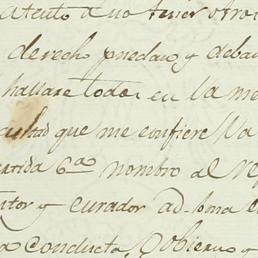 atento a no tener otro
derecho puedan y deban
hallare todo en la me
cultad que me confiere la
artida 6.ª nombro al re
utor y curador ad bona
a conducta, Gobierno y